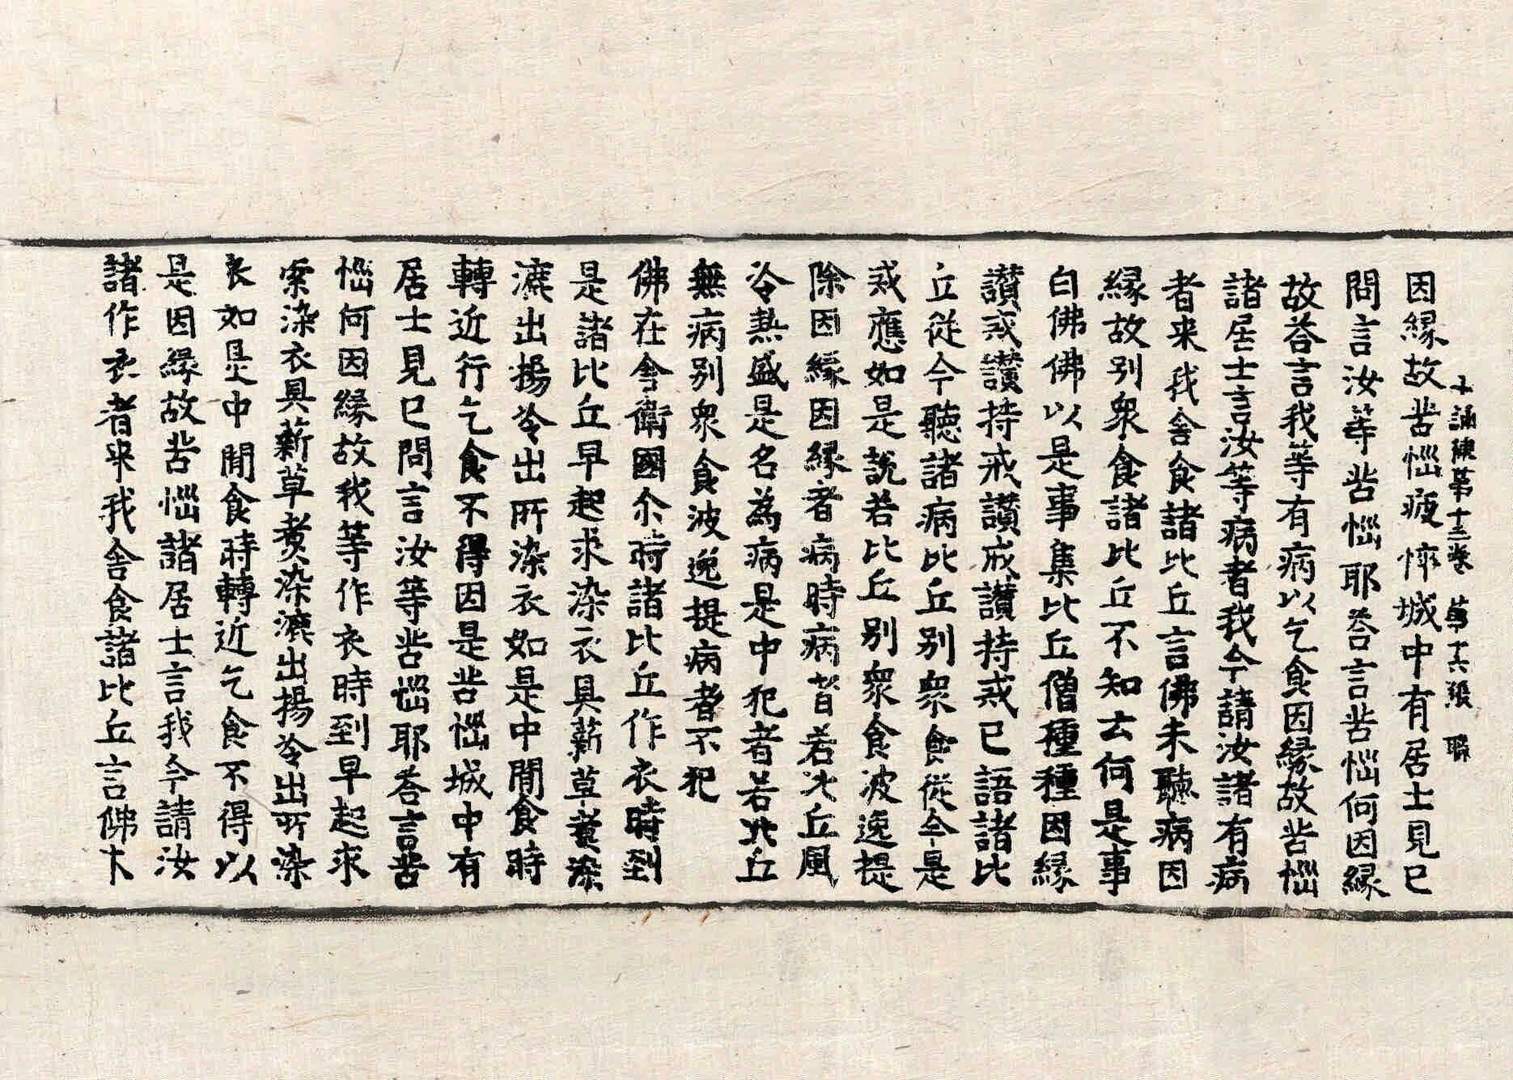 十誦律第十三卷 第十六張 職
因緣故苦惱疲悴城中有居士見已
問言汝等苦惱耶荅言苦惱何因緣
故荅言我等有病以乞食因緣故苦惱
諸居士言汝等病者我今請汝諸有病
者来我舍食諸比丘言佛未聽病因
緣故别衆食諸比丘不知云何是事
白佛佛以是事集比丘僧種種因緣
讃戒讃持戒讃戒讃持戒已語諸比
丘從今聽諸病比丘别衆食從今是
戒應如是說若比丘别衆食波逸提
除因緣因緣者病時病者若比丘風
冷熱盛是名為病是中犯者若比丘
無病别衆食波逸提病者不犯
佛在舍衛國尒時諸比丘作衣時到
是諸比丘早起求染衣具薪草煑染
漉出揚冷出所染衣如是中間食時
轉近行乞食不得因是苦惱城中有
居士見已問言汝等苦惱耶荅言苦
惱何因緣故我等作衣時到早起求
索染衣具薪草煑染漉出揚冷出所染
衣如是中間食時轉近乞食不得以
是因緣故苦惱諸居士言我今請汝
諸作衣者来我舍食諸比丘言佛未